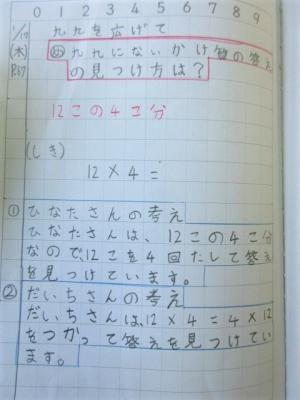 0 1 2 3 4 5 6 7 8 9
九九を広げて
(木) め 九九にないかけ算の答え
P.67 の見つけ方は?
12この4こ分
(しき)
12×4=
① ひなたさんの考え
ひなたさんは、12この4こ分
なので、12こを4回たして答え
を見つけています。
② だいちさんの考え
だいちさんは、12×4=4×12
をつかって答えを見つけてい
ます。